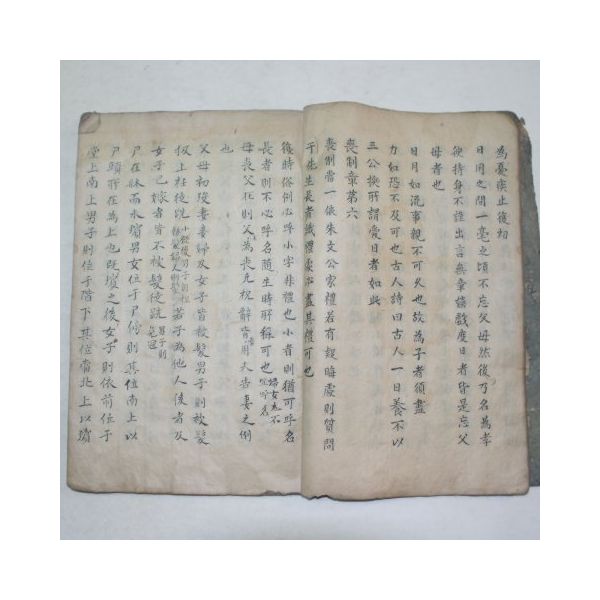 為憂疾止復初
日用之間一毫之頃不忘父母然後乃名為孝
彼持身不謹出言無章嬉戲度日者皆是忘父
母者也
日月如流事親不可久也故為子者須盡
力如恐不及可也古人詩曰古人一日養不以
三公換所謂愛日者如此
喪制章第六
喪制當一依朱文公家禮若有疑晦處則質問
于先生長者識禮處必盡其禮可也
復時俗例必呼小字非禮也小者則猶可呼名
長者則不必呼名隨生時所稱可也婦女尤不宜呼名
母喪父在則父為喪主凡祝辭皆當用夫告妻之例
也
父母初歿妻妾婦及女子皆被髮男子則被髮
扱上衽徒跣小斂後男子則袒括髮婦人則髽若子為他人後者及
女子已嫁者皆不被髮徒跣男子則免冠
尸在牀而未殯男女位于尸傍則其位南上以
尸頭所在為上也既殯之後女子則依前位于
堂上南上男子則位于階下其位當北上以殯